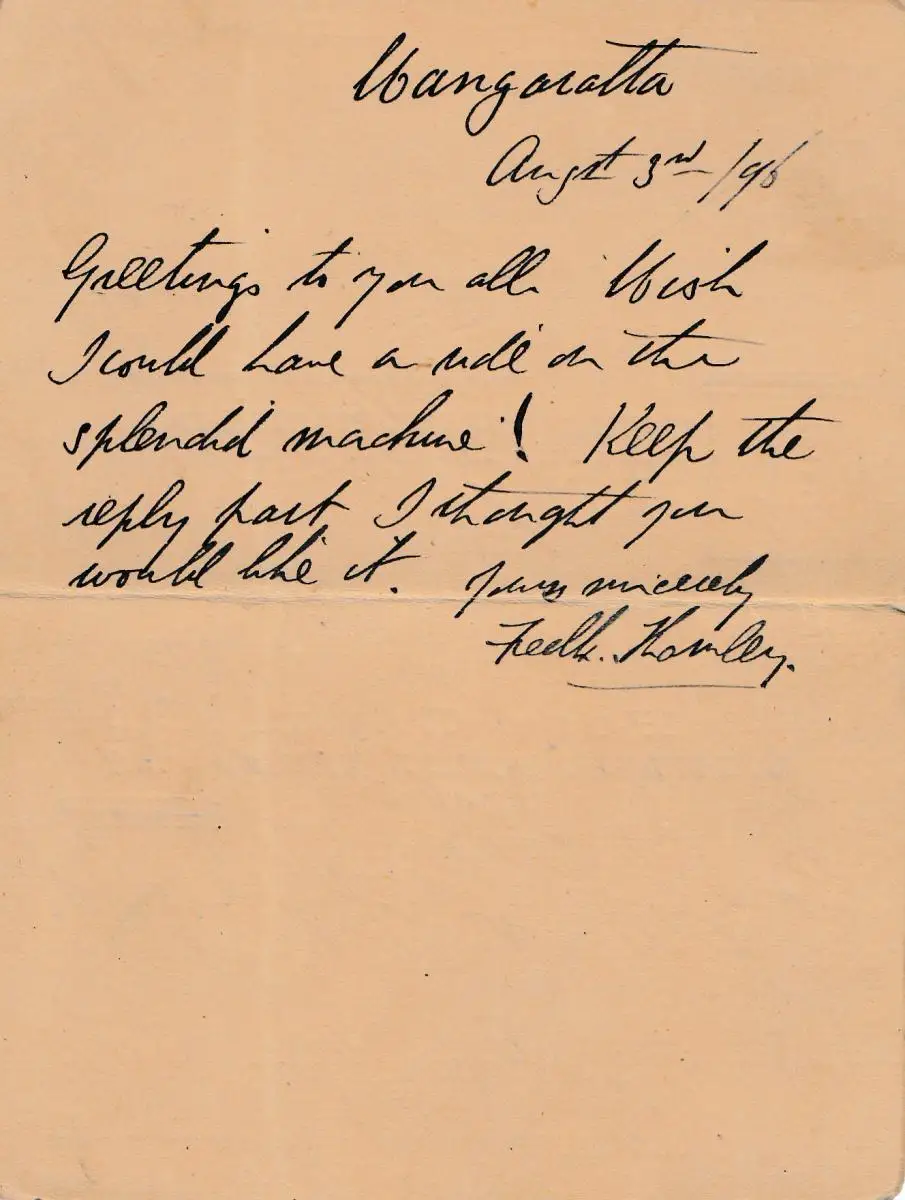 Wangaratta
Augst 3rd /96
Greetings to you all Wish
I could have a ride on the
splendid machine! Keep the
reply part I thought you
would like it. yours sincerely
Fredk.